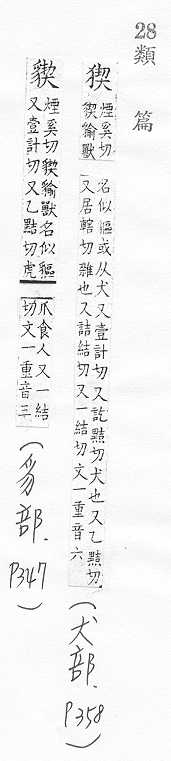 28 類篇
猰
煙奚切
猰貐獸
名似貙或从犬又壹計切又訖黠切犬也又乙黠切
又居轄切雜也又詰結切又一結切文一重音六
(犬部. P358)
䝟
煙奚切䝟貐獸名似貙
又壹計切又乙黠切虎
爪食人又一結
切文一重音三
(豸部. P347)